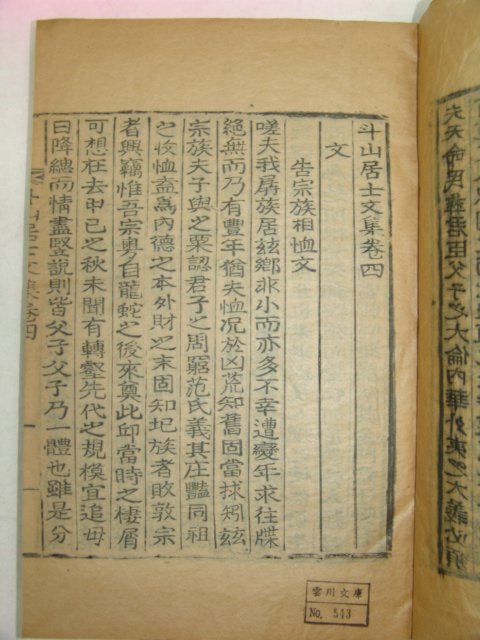 斗山居士文集卷四
文
告宗族相恤文
嗟夫我孱族居玆鄕非小而亦多不幸遭變年求往牒
絕無而乃有豐年猶夫恤况於凶荒知舊固當捄矧玆
宗族夫子與之粟認君子之周窮范氏義其庄豔同祖
之收恤盖爲內德之本外財之末固知圮族者敗敦宗
者興竊惟吾宗粤自龍蛇之後來奠此邱當時之棲屑
可想在去申已之秋未聞有轉壑先代之規模宜追毋
曰降緦而情盡竪說則皆父子父子乃一體也雖是分
斗山居士文集卷四
夫天命民彝君臣父子之大倫內華外夷之大義必須
雲川文庫
No. 543